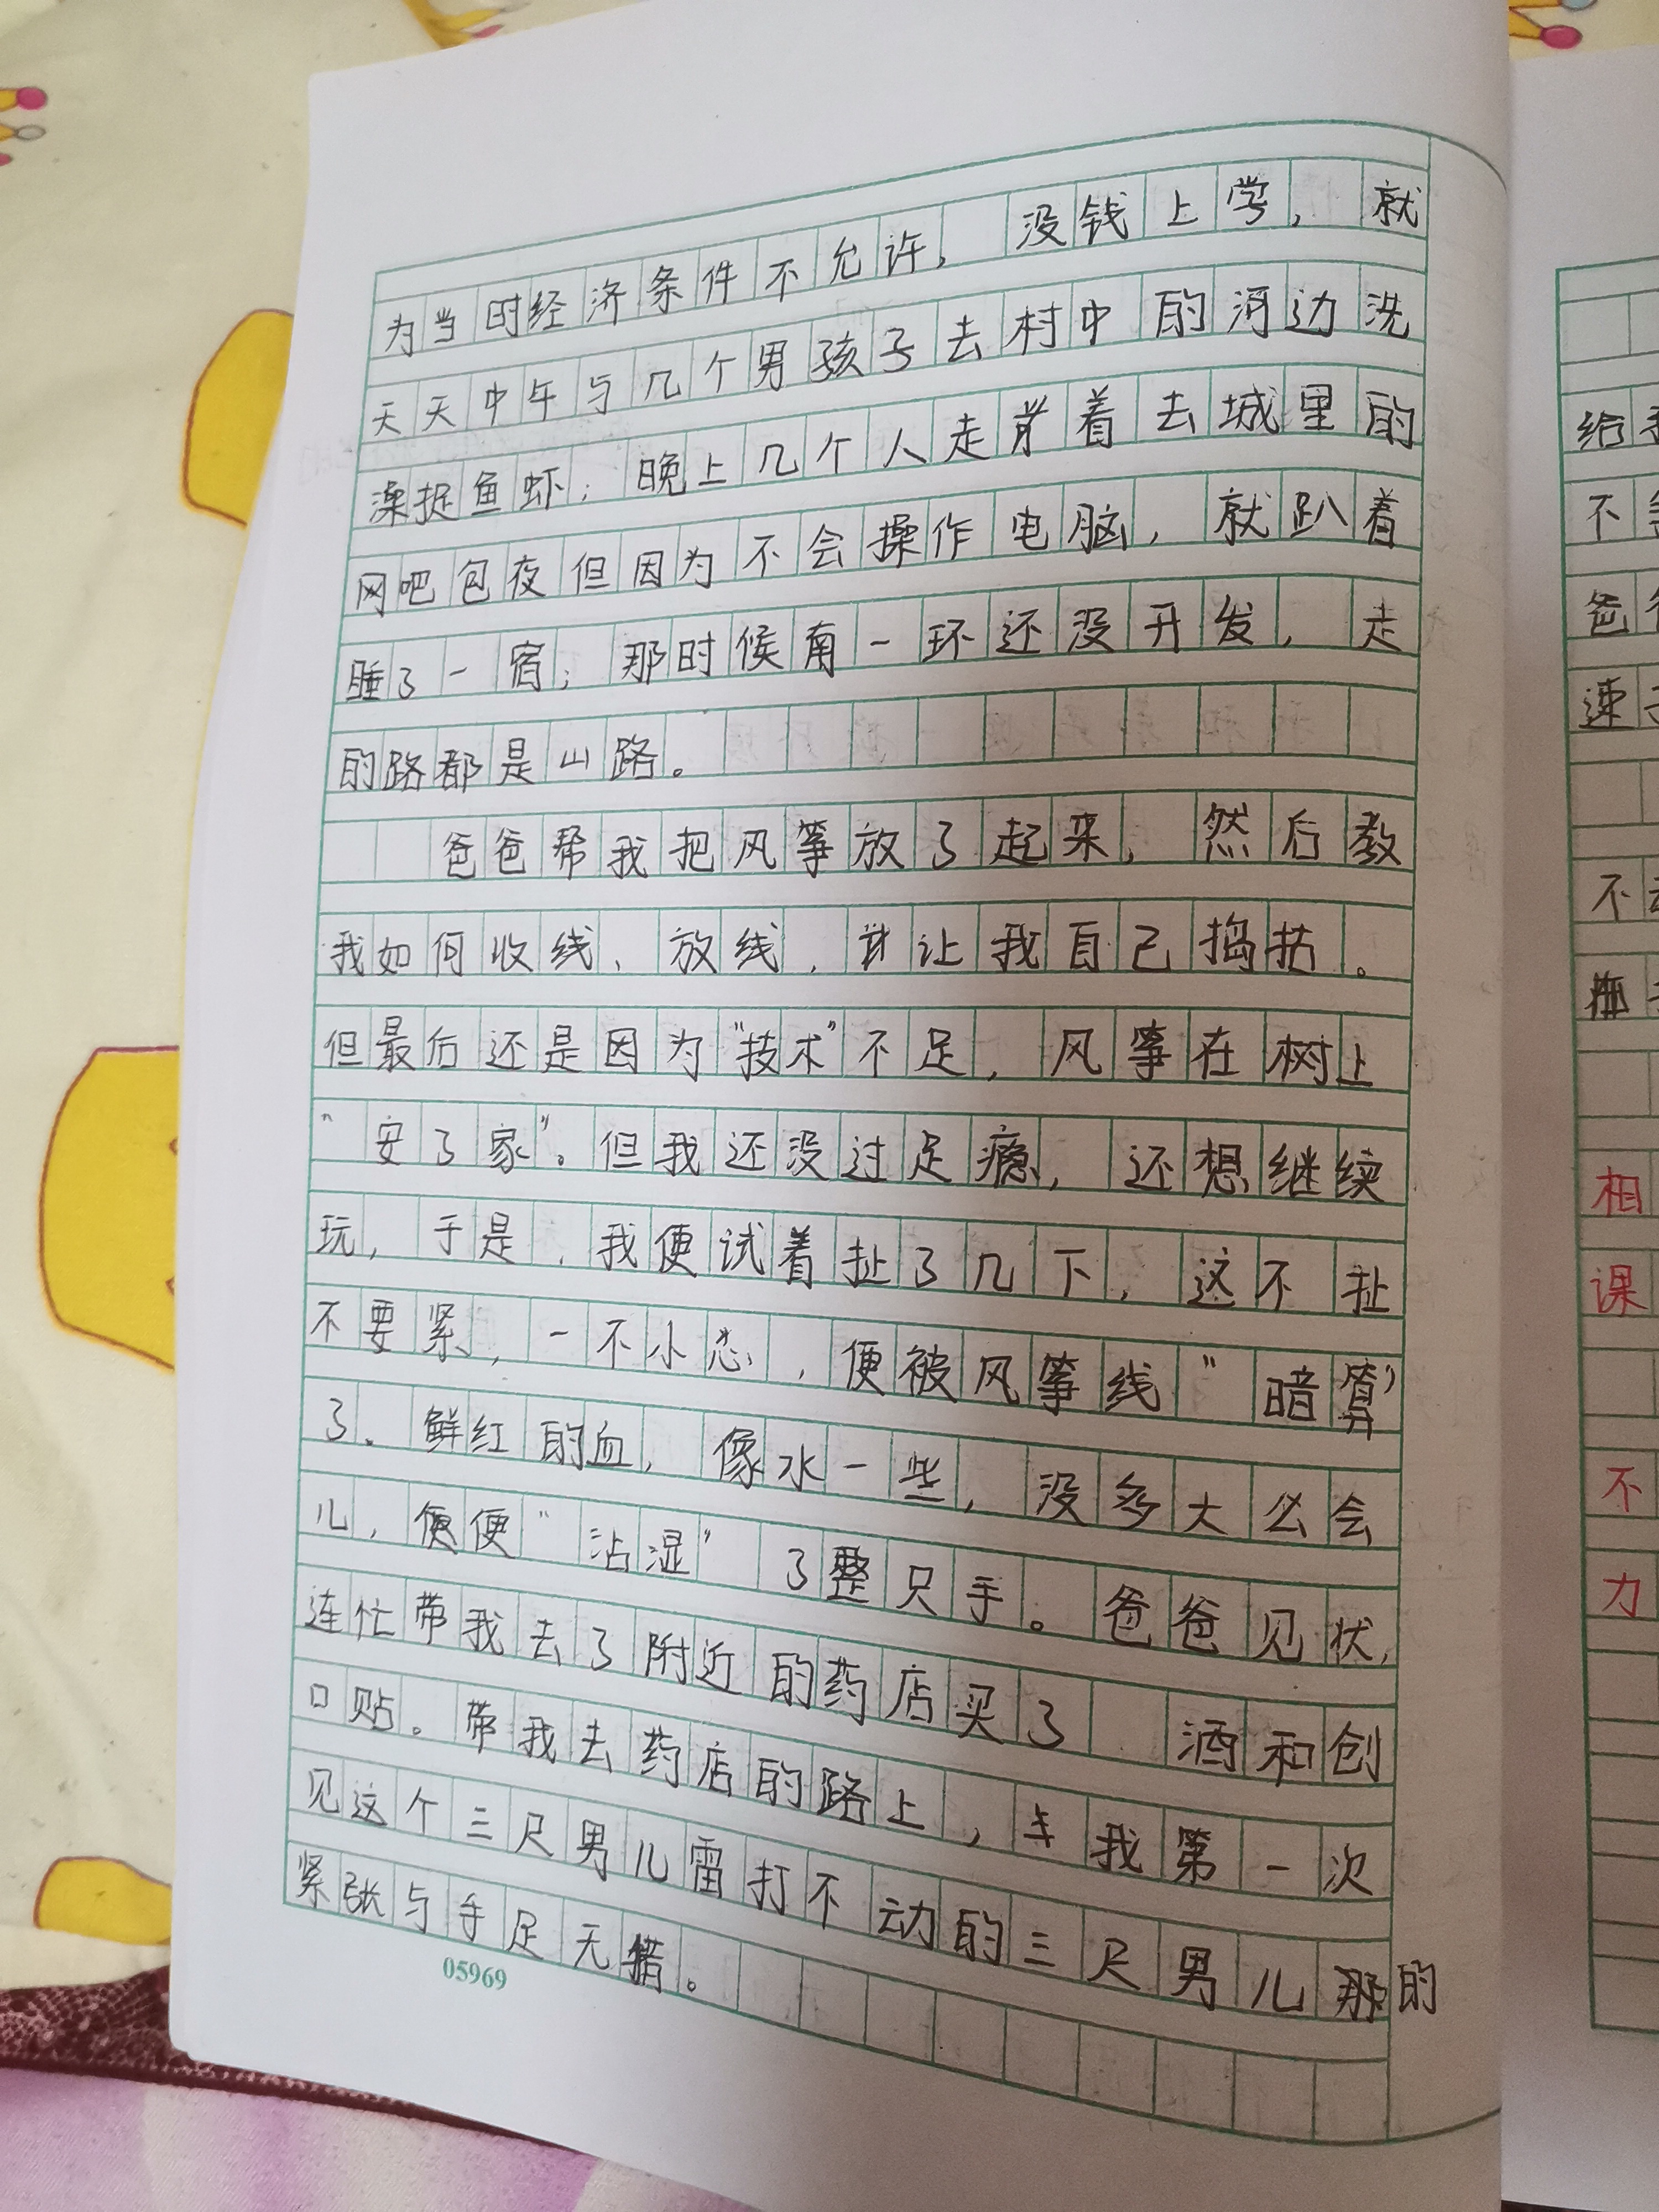 为当时经济条件不允许，没钱上学，就
天天中午与几个男孩子去村中的河边洗
澡捉鱼虾；晚上几个人走着去城里的
网吧包夜但因为不会操作电脑，就趴着
睡了一宿；那时候南一环还没开发，走
的路都是山路。
爸爸帮我把风筝放了起来，然后教
我如何收线、放线，让我自己捣鼓。
但最后还是因为“技术”不足，风筝在树上
“安了家”。但我还没过足瘾，还想继续
玩，于是，我便试着扯了几下，这不扯
不要紧，一不小心，便被风筝线“暗算”
了。鲜红的血，像水一些，没多大么会
儿，便便“沾湿”了整只手。爸爸见状，
连忙带我去了附近的药店买了 酒和创
口贴。带我去药店的路上，我第一次
见这个三尺男儿雷打不动的三尺男儿那的
紧张与手足无措。
05969
给
不
爸
速
不
相
课
不
力